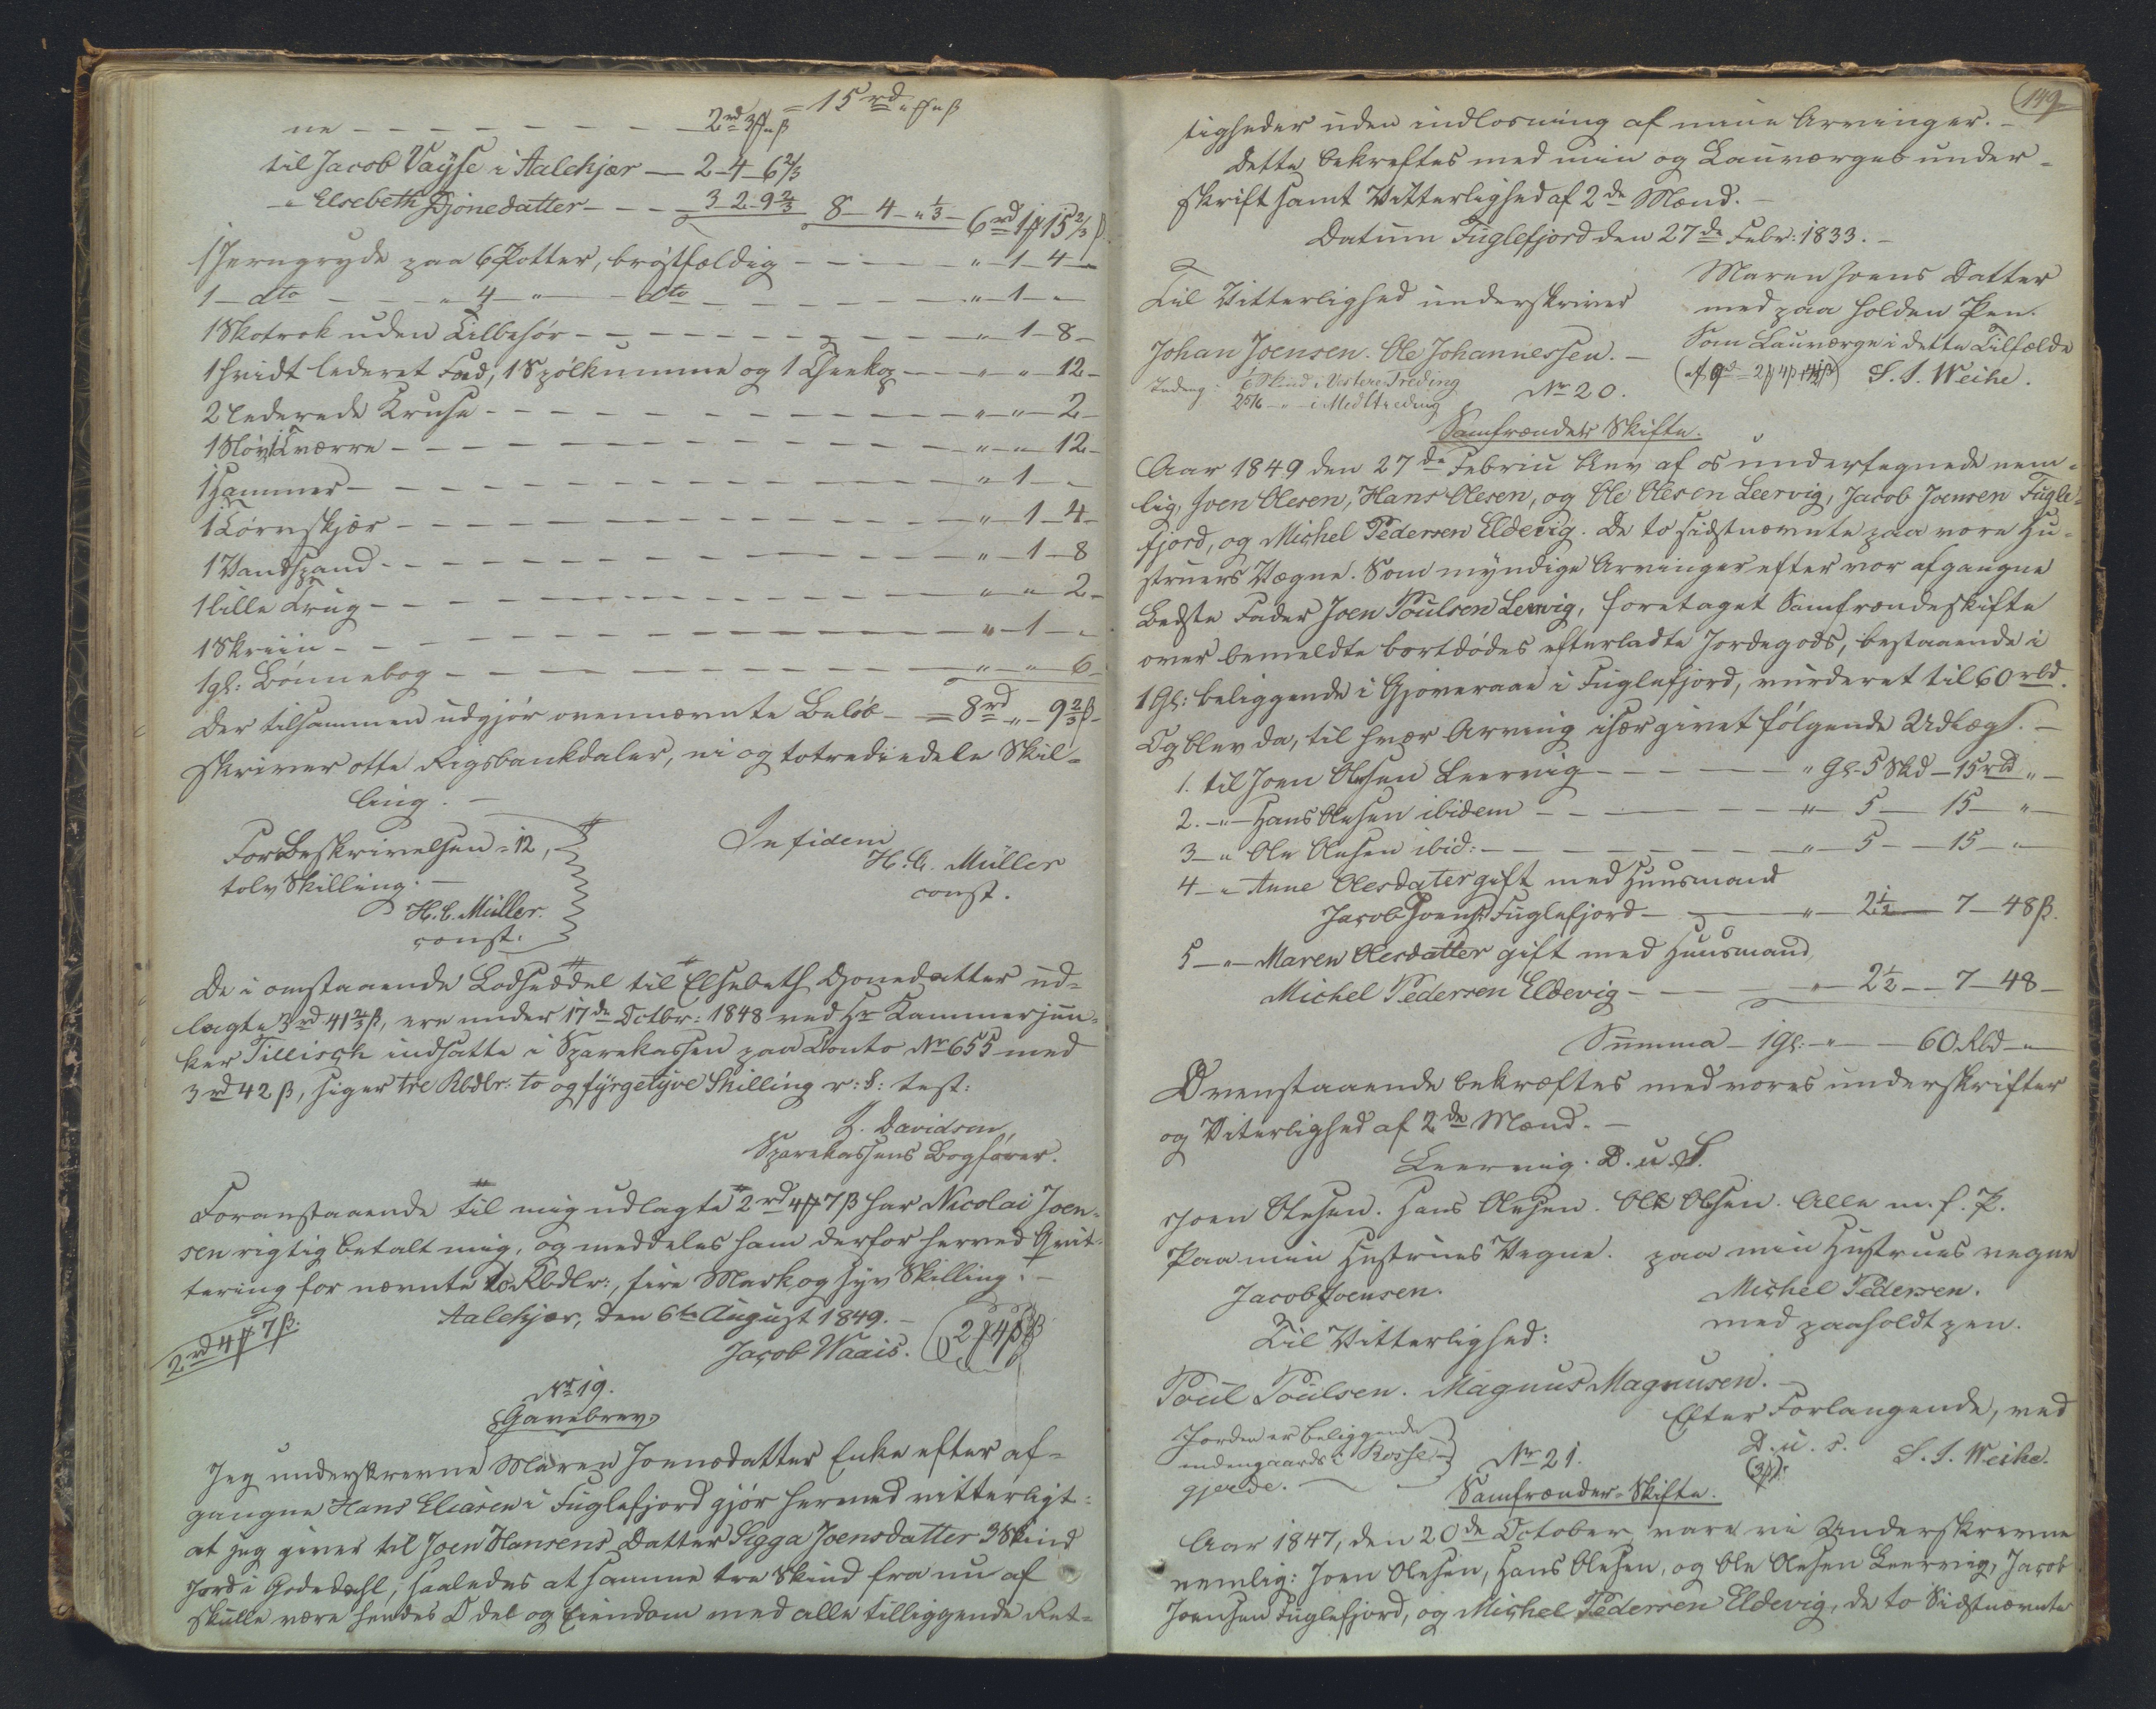 = 15 rd " ß " ß
ne - - - - - - - 2 rd 3 ß
til Jacob Vaÿse i Aalehjær — 2-4-6 2/3
" Elsebeth Djonedatter - - - 3-2-9 2/3 8-4-"1/3 - 6 rd 1 15 2/3 ß
1 Jerngryde paa 6 Potter, bröstfældig - - - " 1-4-
1 - dto - - " 4 - " - dto - - - - - " - 1 - "
1 Skotrok uden Tilbehör - - - - - - " 1-8-
1 hvidt lederet Fad, 1 Spölkumme og 1 Theekop - - " " 12-
2 lederede Kruse - - - - - - - " - " - 2-
1 Kværre - - - - - - - " - " 12-
1 Hammer - - - - - - - " 1 - "
1 Törvskjær - - - - - - - " - 1-4-
1 Vandspand - - - - - - - " - 1-8
1 lille Krug - - - - - - - " - " 2-
1 Skriin - - - - - - - " - 1 - "
1 gl: Bönnebog - - - - - - - " - " - 6-
Der tilsammen udgjör ovennævnte Belöb - = 8 rd " - 9 2/3 ß -
skriver otte Rigsbankdaler, ni og totrediedele Skil-
ling. -
For Beskrivelsen = 12,
tolv Skilling. -
H. C. Müller.
const.
In fidem
H. C. Müller
const.
De i omstaaende Lodseddel til Elsebeth Djonedatter ud-
lagte 3 rd 41 2/3 ß, ere under 17 de Octbr: 1848 ved Hr Kammerjun-
ker Tillisch indsatte i Sparekassen paa Conto No 655 med
3 rd 42 ß, siger tre Rbdlr: to og fyrgetyve Skilling r: S: test:
J. Davidsen,
Sparekassens Bogförer.
Foranstaaende til mig udlagte 2 rd 4 7 ß har Nicolai Joen-
sen rigtig betalt mig, og meddeles ham derfor herved Qvit-
tering for nævnte to Rbdlr:, fire Mark og syv Skilling. -
Aalehjær, den 6te August 1849. -
2 rd 4 7 ß. Jacob Waais.
No 19.
Gavebrev
Jeg underskrevne Maren Joensdatter Enke efter af-
gangne Hans Eliasen i Fuglefjord gjör hermed vitterligt:
at jeg giver til Joen Hansens Datter Sigga Joensdatter 3 Skind
Jord i Godedahl, saaledes at samme tre Skind fra nu af
skulle være hendes Odel og Eiendom med alle tilliggende Ret-
149
tigheder uden indlosning af mine Arvinger. -
Dette bekreftes med min og Lauværges under-
skrift samt Vitterlighed af 2 de Mænd. -
Datum Fuglefjord den 27 de Febr: 1833. -
Til Vitterlighed underskriver
Maren Joens Datter
med paa holden Pen.
Johan Joensen. Ole Johannessen. -
Som Lauværge i dette Tilfælde
S. S. Weihe.
Indmg: Skind i Vestere Treding
- " - i Midltreding
No 20.
Samfrænder Skifte.
Aar 1849 den 27 de Febriu blev af os undertegnede nem-
lig, Joen Olesen, Hans Olesen, og Ole Olesen Leervig, Jacob Joensen Fugle-
fjord, og Michel Pedersen Eldevig. De to sidstnævnte paa vore Hu-
struers Vægne. Som myndige Arvinger efter vor afgangne
Bedste Fader Joen Poulsen Lervig, foretaget Samfrændeskifte
over bemeldte bortdödes efterladte Jordegods, bestaaende i
1 Gl: beliggende i Gjoveraae i Fuglefjord, vurderet til 60 rbd.
Og blev da, til hver Arving især givet fölgende Udlæg. -
1. til Joen Olesen Leervig - - - - " Gl - 5 Skd - 15 rbd " -
2. - " - Hans Olesen ibidem - - - - " - 5 - 15 - " -
3 - " Ole Olesen ibid: - - - - - " - 5 - - 15 - " -
4 - " Anne Olesdater gift med Huusmand
Jacob Joens: Fuglefjord - - - " - 2 1/2 - 7 - 48 ß.
5 - " - Maren Olesdatter gift med Huusmand,
Michel Pedersen Eldevig - - - - " - 2 1/2 - - 7 - 48 -
Summa - 1 Gl: - " - - 60 Rbd - "
Ovenstaaende bekræftes med vores underskrifter
og Viterlighed af 2 de Mænd. -
Leervig. D. u. S.
Joen Olesen. Hans Olesen. Ole Olsen. Alle m. f. P.
Paa min Hustrues Vegne. paa min Hustrues vegne
Jacob Joensen. Michel Pedersen.
med paaholdt pen.
Til Vitterlighed:
Poul Poulsen. Magnus Magnusen. -
Efter Forlangende, ved
D. u. s. S. S. Weihe.
Jorden er beliggende
indengaards i Rosse-
gjerde. -
No 21.
Samfrænder-Skifte.
Aar 1847, den 20 de October vare vi Underskrevne
nemlig: Joen Olesen, Hans Olesen, og Ole Olesen Leervig, Jacob
Joensen Fuglefjord, og Michel Pedersen Eldevig, de to Sidstnævnte